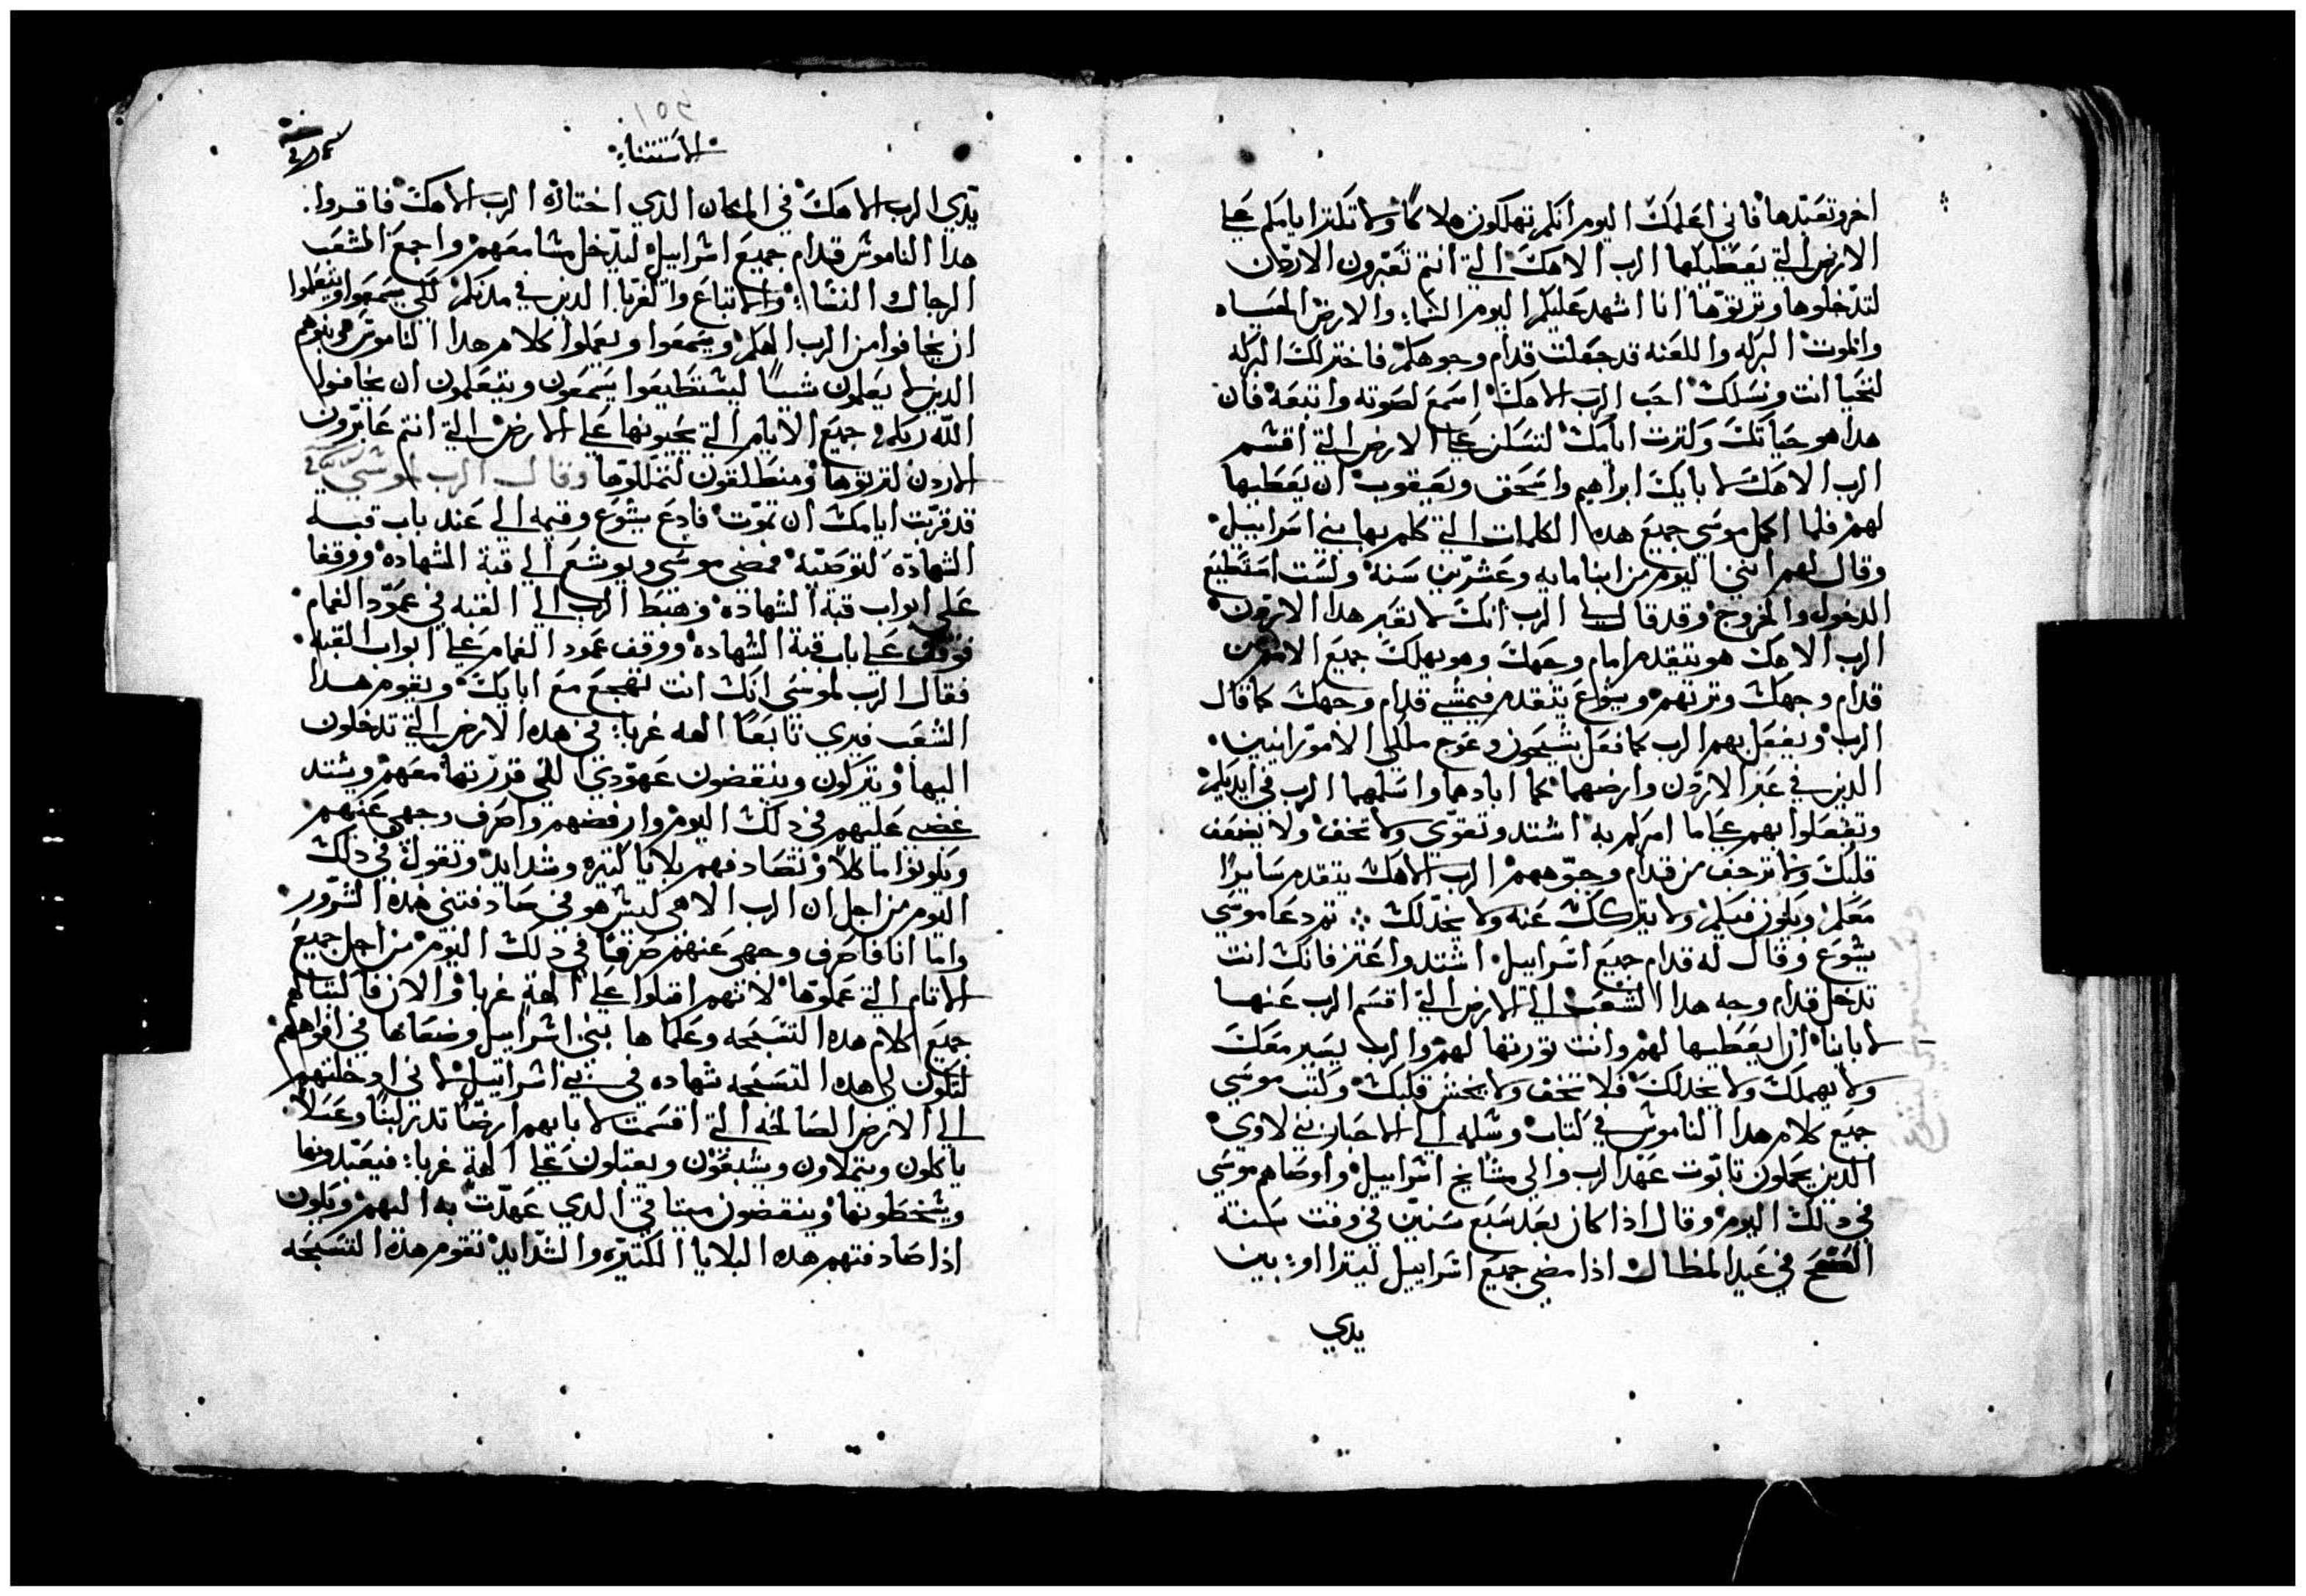 اخر وتعبدها فاني اعلمك اليوم انكم تهلكون هلاكًا ولا تكتر ايامكم علي
الارض التي يعطيكها الرب الاهك التي انتم تعبرون الاردن
لتدخلوها وترتوها انا اشهد عليكم اليوم السماء والارض الحياه
والموت البركه واللعنه قد جعلت قدام وجوهكم فاختر لك البركه
لتحيا انت ونسلك احب الرب الاهك اسمع لصوته واتبعه فان
هدا هو حياتك وكترت ايامك لتسكن علي الارض التي اقسم
الرب الاهك لابايك ابراهيم واسحق ويعقوب ان يعطيها
لهم فلما اكمل موسي جميع هده الكلمات التي كلم بها بني اسراييل
وقال لهم انني اليوم من ابنا مايه وعشرين سنه ولست استطيع
الدخول والخروج وقد قال لي الرب انك لا تعبر هدا الاردن
الرب الاهك هو يتقدم امام وجهك وهو يهلك جميع الامم من
قدام وجهك وترتهم ويشوع يتقدم فيمشي قدام وجهك كما قال
الرب ويفعل بهم الرب كما فعل بشيحون وعوج ملكي الامورانيين
الدين في عبر الاردن وارضهما كما ابادهما واسلمهما الرب في ايديكم
وتفعلوا بهم علي ما امركم به اشتد وتقوي ولا تخف ولا يضعف
قلبك ولا ترجف من قدام وجوههم الرب الاهك يتقدم سايرا
معكم ويكون فيكم ولا يتركك عنه ولا يخدلك ثم دعا موسي
يشوع وقال له قدام جميع اسراييل اشتد واعتز فانك انت
تدخل قدام وجه هدا الشعب الي الارض التي اقسم الرب عنها
لاباينا ان يعطيها لهم وانت تورتها لهم والرب يسير معك
ولا يهملك ولا يخدلك فلا تخف ولا يخش قلبك وكتب موسي
جميع كلام هدا الناموس في كتاب وسلمه الي الاحبار بني لاوي
الدين يحملون تابوت عهد الرب والي مشايخ اسراييل واوصاهم موسي
في دلك اليوم وقال ادا كان بعد سبع سنين في وقت سنة
في عيد المظال ادا مضي جميع اسراييل ليترااو بين
يدي
الاستثناء
يدي الرب الاهك في المكان الدي اختاره الرب الاهك فاقروا
هدا الناموس قدام جميع اسراييل ليدخل مسامعهم واجمع الشعب
الرجال النساء والاتباع والغربا الدين في مدنكم لكي يسمعوا ويتعلموا
ان يخافوا من الرب الهكم ويسمعوا ويعملوا كلام هدا الناموس هم وبنوهم
الدين لا يعلمون شيًا ليستطيعوا يسمعون ويتعلمون ان يخافوا
الله ربكم جميع الايام التي يحيونها علي الارض التي انتم عابرون
الاردن لترتوها ومنطلقون لتملكوها وقال الرب لموسي
قد قربت ايامك ان تموت فادع يشوع وقيمه الي عند باب قبة
الشهادة لتوصية فمضي موسي ويوشع الي قبة الشهادة ووقفا
علي ابواب قبة الشهادة وهبط الرب الي القبه في عمود الغمام
فوقف علي باب قبة الشهادة ووقف عمود الغمام علي ابواب القبه
فقال الرب لموسي انك انت تهجع مع ابايك ويقوم هدا
الشعب فيري تابعًا الهه غرباء في هده الارض التي تدخلون
اليها ويتركون وينقضون عهودي اللي قررتها معهم ويشتد
غضبي عليهم في دلك اليوم وارفضهم واصرف وجهي عنهم
ويكونوا ماكلا وتصادفهم بلايا كتيره وشدايد وتقول في دلك
اليوم من اجل ان الرب الاهي ليس هو في صادفتني هده الشرور
واما انا فاصرف وجهي عنهم صرفا في دلك اليوم من اجل جميع
الاتام التي عملوها لانهم اقبلوا علي الهة غربا والان فاكتبا لكم
جميع كلام هده التسبحه وعلماها بني اسراييل وضعاها في افواههم
لتكون لي هده التسبحه شهاده في بني اسراييل لاني ادخلتهم
الي الارض الصالحه التي اقسمت لابايهم ارضًا تدر لبنًا وعسلًا
ياكلون ويتملاون ويشبعون ويقبلون علي الهة غرباء فيعبدونها
ويسخطونها وينقضون ميتاقي الدي عهدت به اليهم ويكون
ادا صادفتهم هده البلايا الكتيره والشدايد تقوم هده التسبحه